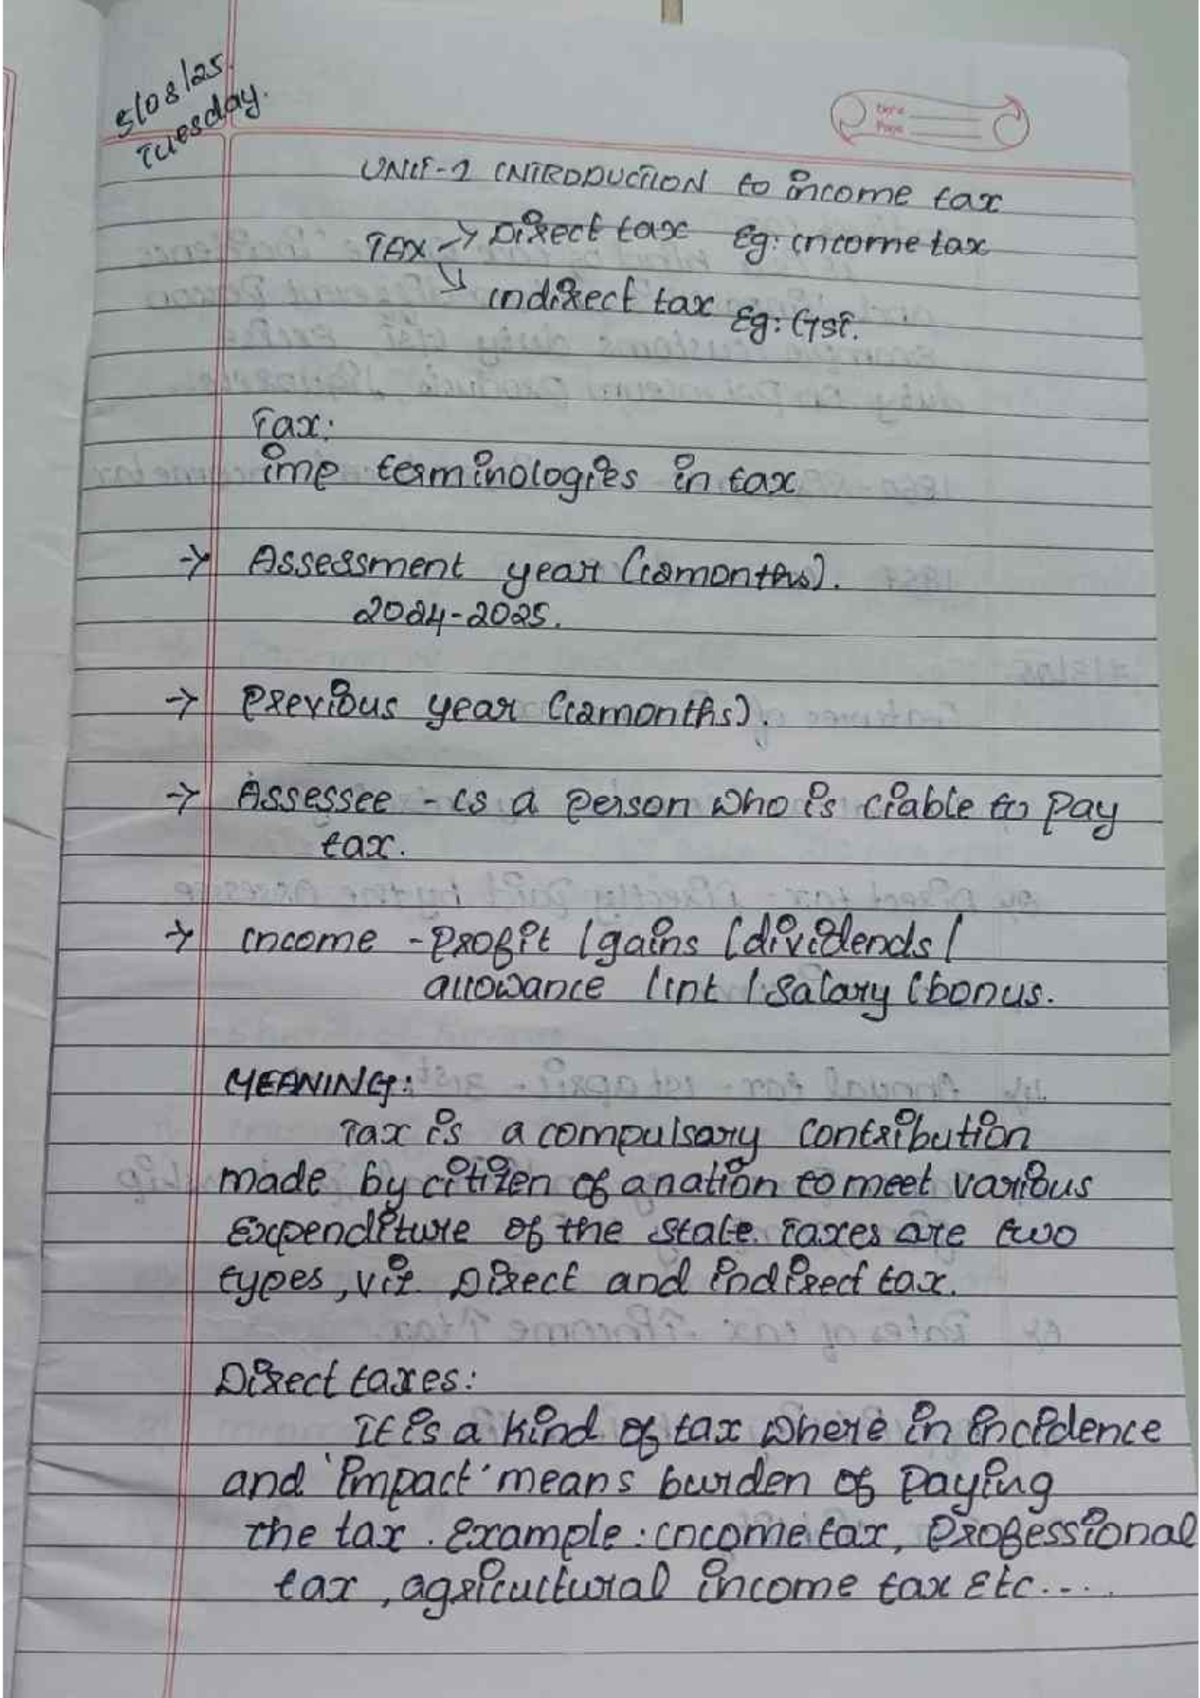 5/08/25.
Tuesday.
Date
Page
UNIT-1 INTRODUCTION to income tax
TAX → Direct tax Eg: income tax
↘ indirect tax Eg: GST.
Tax:
imp terminologies in tax
→ Assessment year (12months).
2024-2025.
→ previous year (12months).
→ Assessee - is a person who is liable to pay
tax.
→ income - profit / gains / dividends /
allowance / int / salary / bonus.
MEANING:
Tax is a compulsary contribution
made by citizen of a nation to meet various
expenditure of the state. Taxes are two
types, viz. Direct and indirect tax.
Direct taxes:
It is a kind of tax where in incidence
and 'impact' means burden of paying
the tax. Example: income tax, professional
tax, agricultural income tax etc....